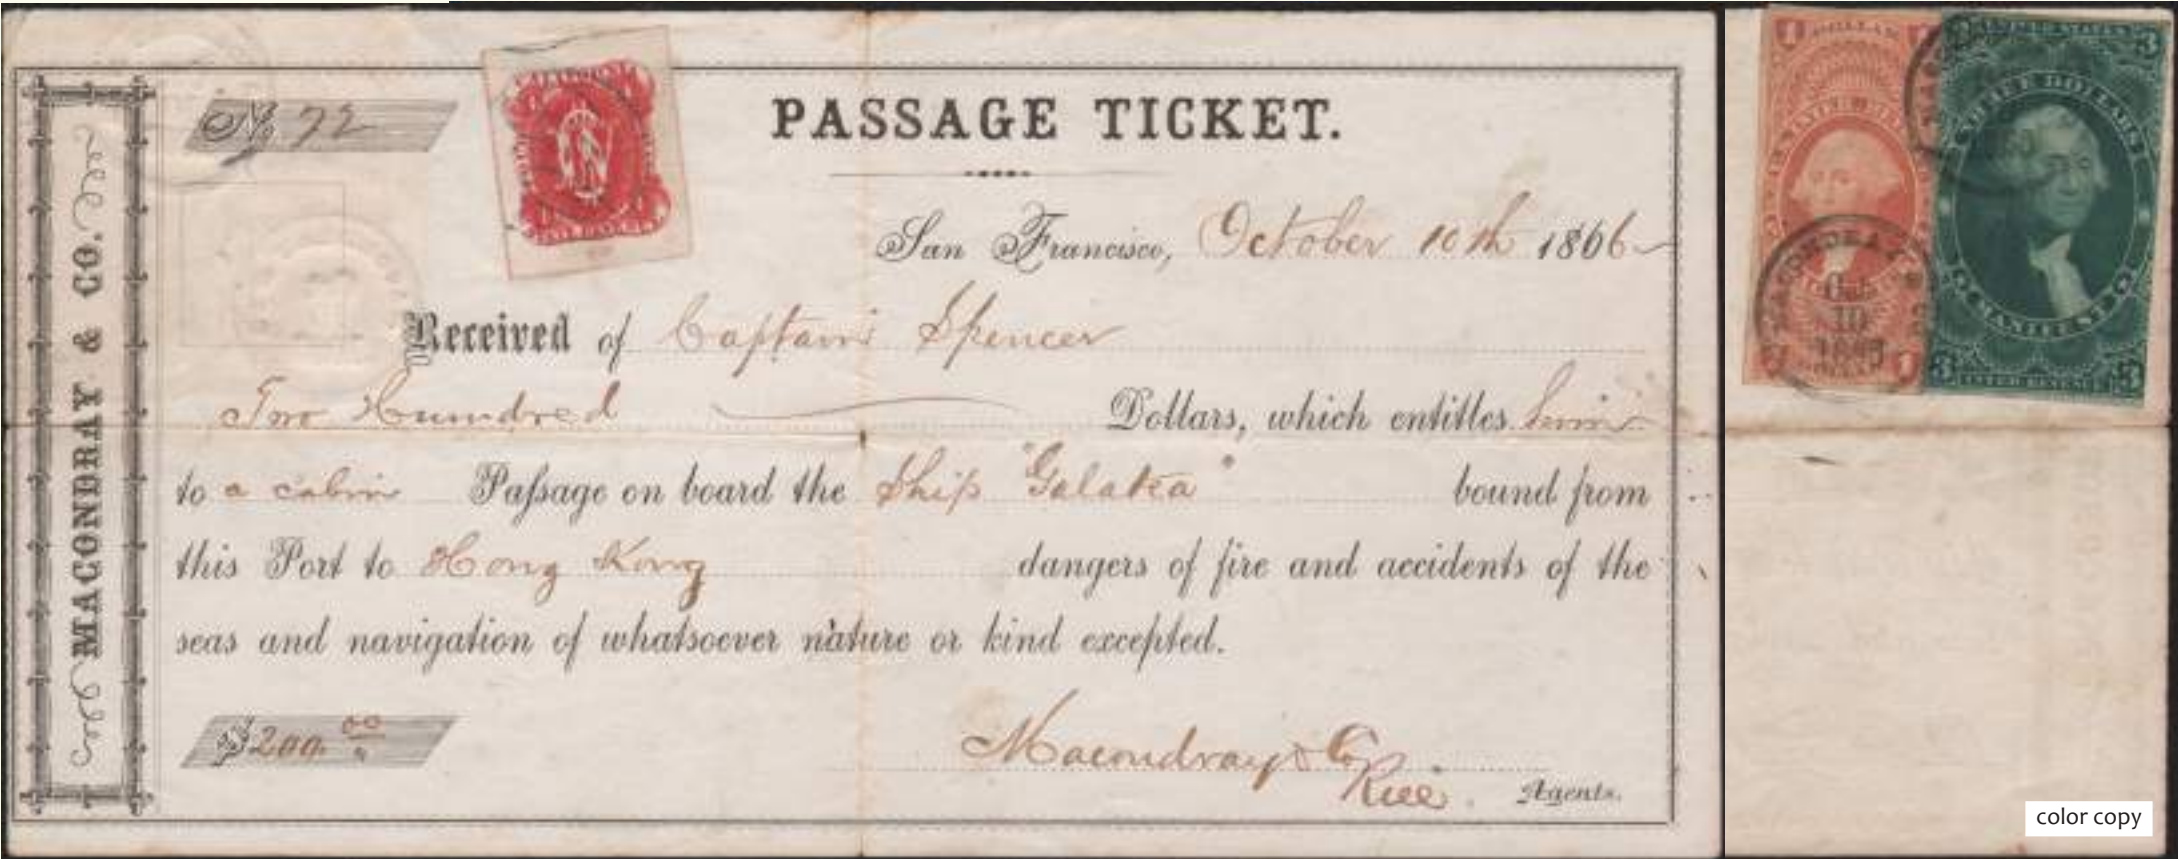 MACONDRAY & CO.
No. 72
PASSAGE TICKET.
San Francisco, October 10th 1866
Received of Captain Spencer
Two Hundred Dollars, which entitles him
to a cabin Passage on board the Ship "Galatea" bound from
this Port to Hong Kong dangers of fire and accidents of the
seas and navigation of whatsoever nature or kind excepted.
$200.00
Macondray & Co
Agents.
1 DOLLAR
1
UNITED STATES
3 3
THREE DOLLARS
MANIFEST
MACONDRAY &
Oct
10
3 INTER REVENUE 3
color copy